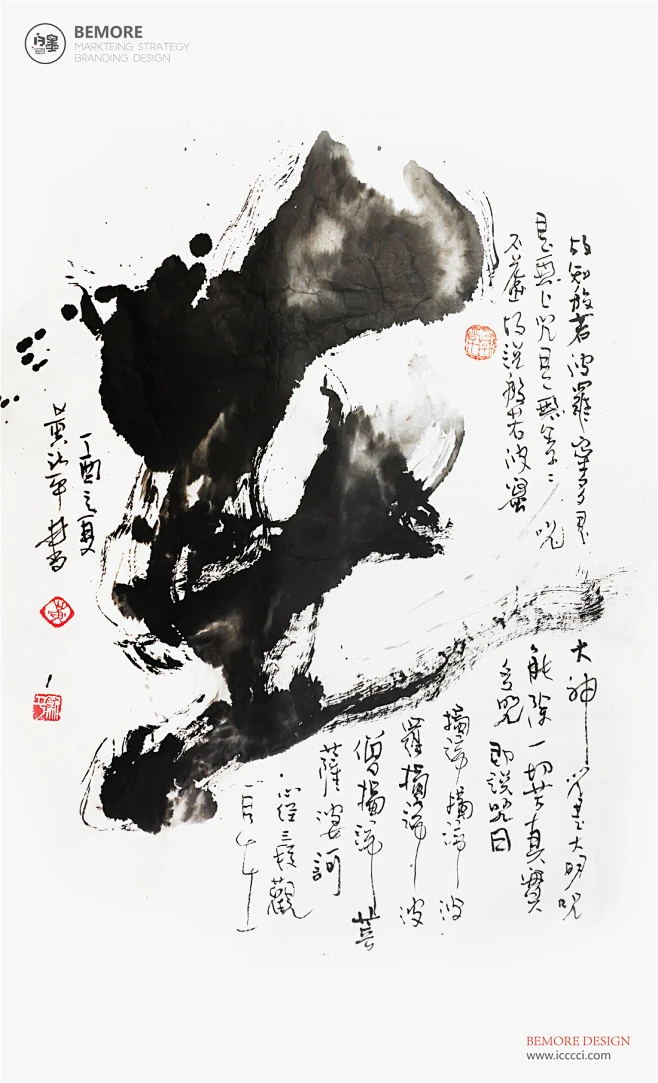 BEMORE
MARKTEING STRATEGY
BRANDING DESIGN
故知般若波羅蜜多是
大神咒是大明咒
是無上咒是無等等咒
能除一切苦真實
不虛故説般若波蜜
多咒即説咒曰
揭諦揭諦波
羅揭諦波
僧揭諦菩
薩婆訶
心經三
丁酉之夏
BEMORE DESIGN
www.icccci.com